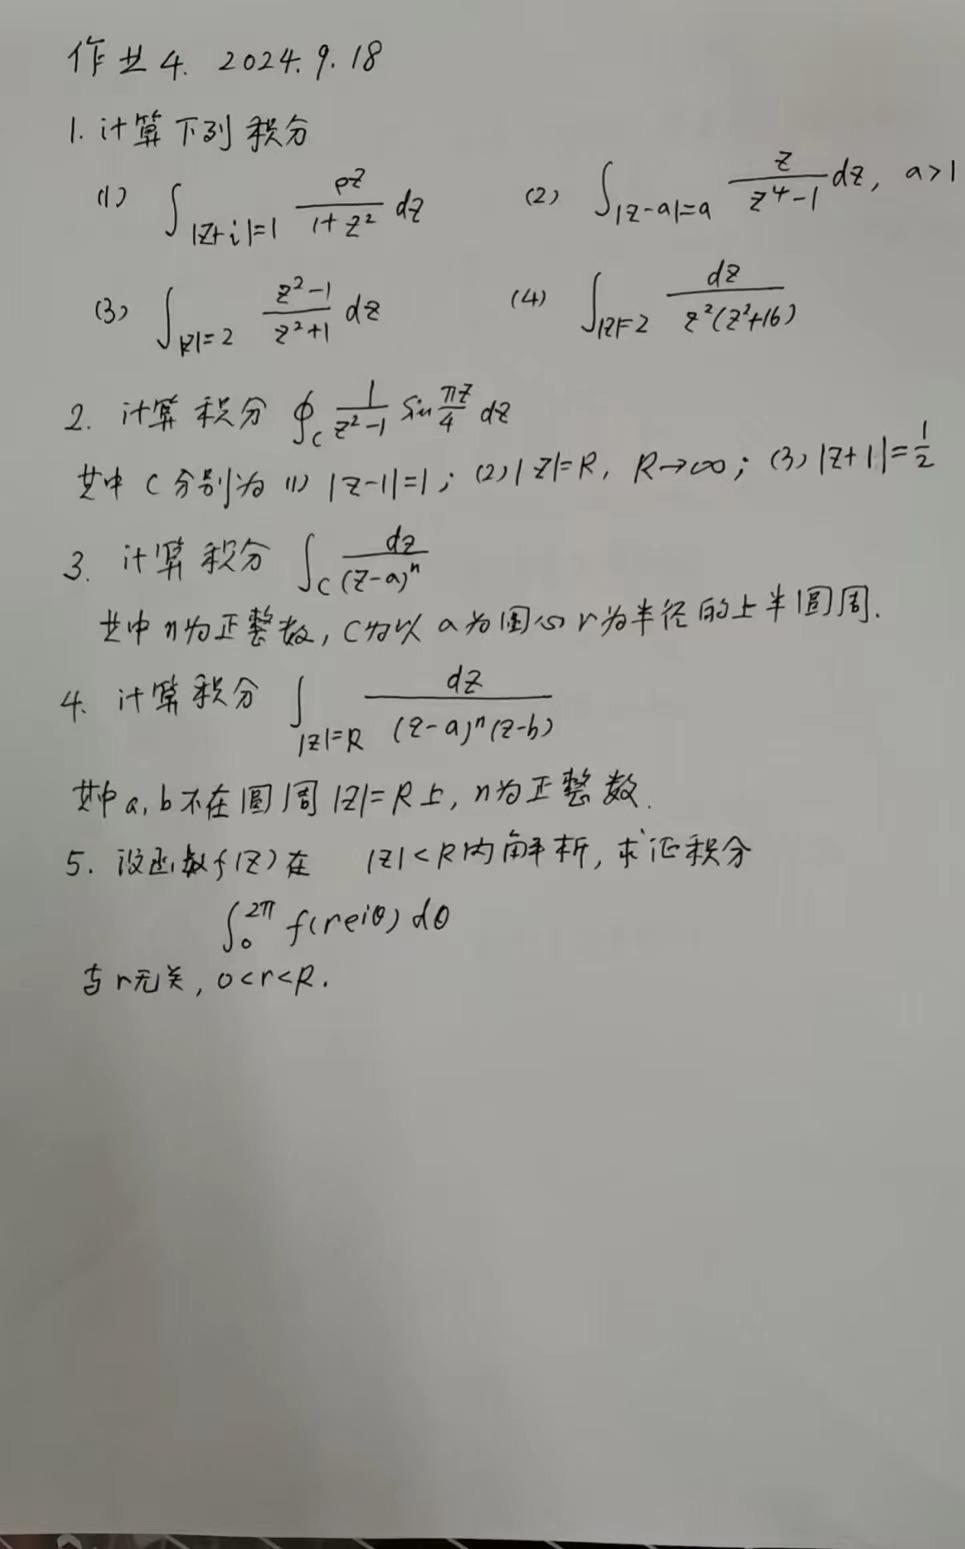 作业4. 2024.9.18
1. 计算下列积分
(1) ∫_{|z+i|=1} e^z/(1+z²) dz (2) ∫_{|z-a|=a} z/(z⁴-1) dz, a>1
(3) ∫_{|z|=2} (z²-1)/(z²+1) dz (4) ∫_{|z|=2} dz/(z²(z²+16))
2. 计算积分 ∮_C 1/(z²-1) sin πz/4 dz
其中 C 分别为 (1) |z-1|=1; (2) |z|=R, R→∞; (3) |z+1|=1/2
3. 计算积分 ∫_C dz/(z-a)ⁿ
其中 n为正整数, C为以 a为圆心 r为半径的上半圆周.
4. 计算积分 ∫_{|z|=R} dz/((z-a)ⁿ(z-b))
其中 a, b 不在圆周 |z|=R上, n为正整数.
5. 设函数f(z)在 |z|<R内解析, 求证积分
∫₀^{2π} f(reiθ) dθ
与r无关, 0<r<R.